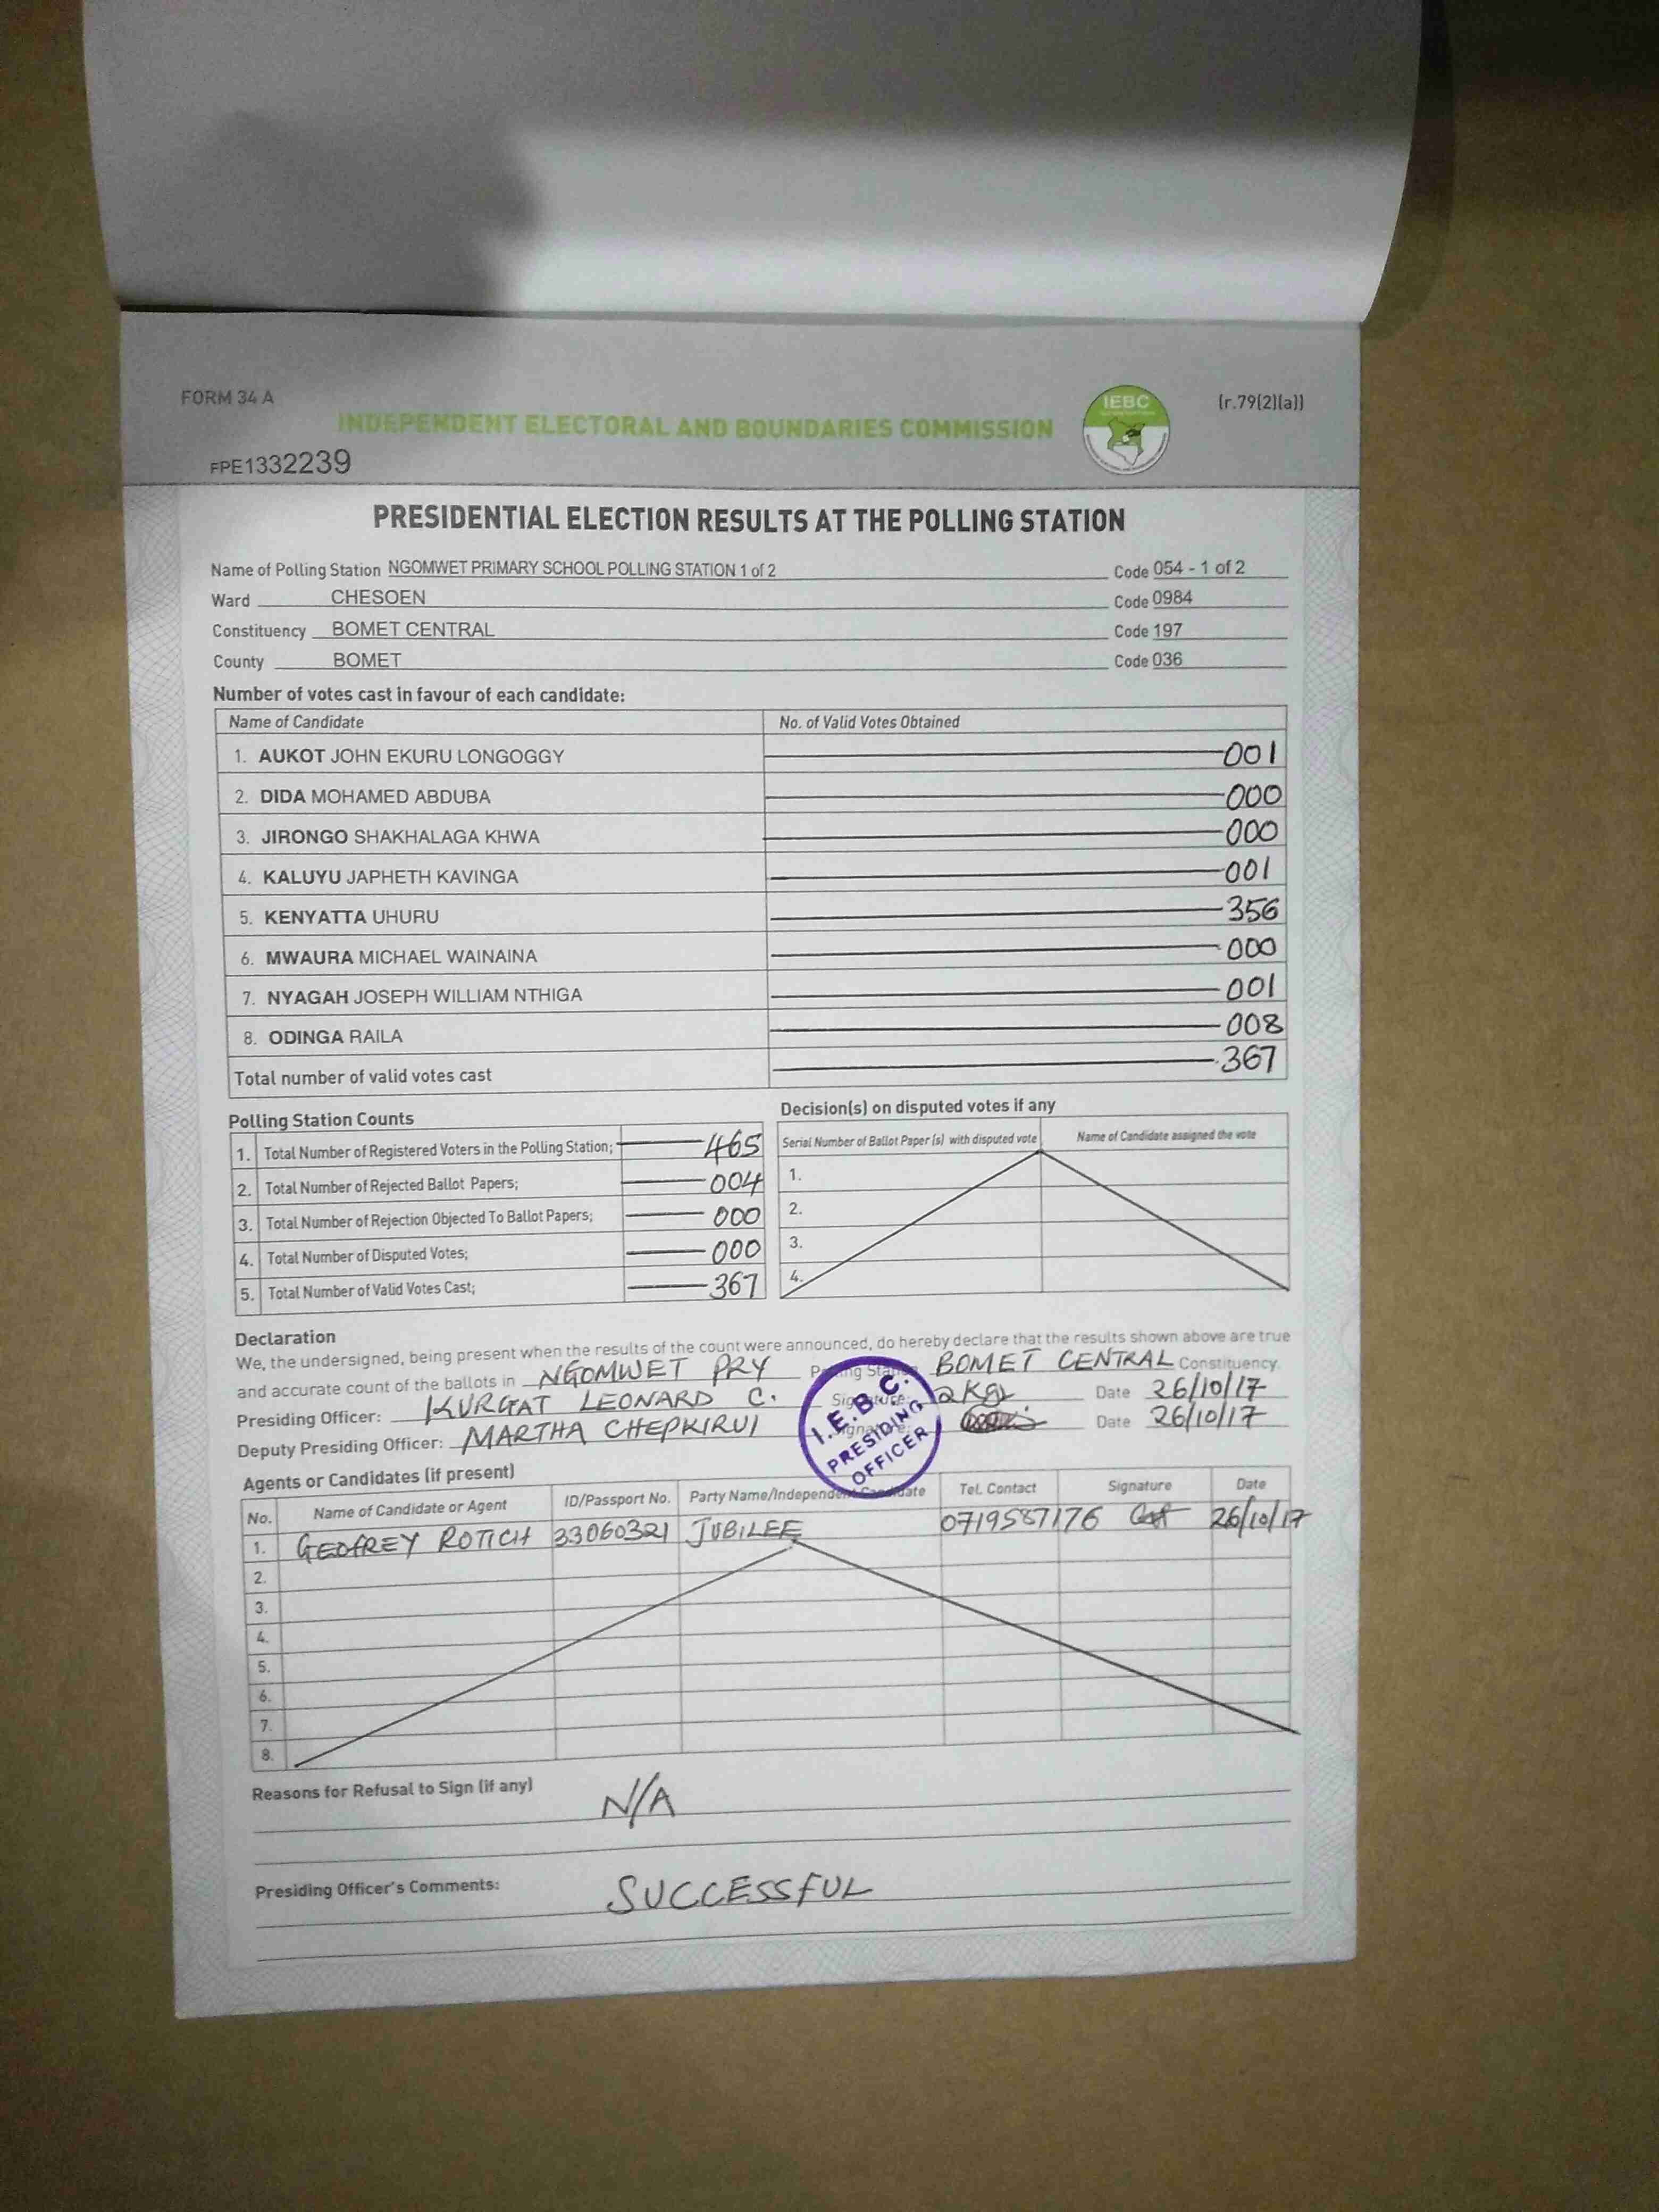 FORM 34 A
INDEPENDENT ELECTORAL AND BOUNDARIES COMMISSION
IEBC
(r.79(2)(a))
FPE1332239
PRESIDENTIAL ELECTION RESULTS AT THE POLLING STATION
Name of Polling Station NGOMWET PRIMARY SCHOOL POLLING STATION 1 of 2 Code 054 - 1 of 2
Ward CHESOEN Code 0984
Constituency BOMET CENTRAL Code 197
County BOMET Code 036
Number of votes cast in favour of each candidate:
Name of Candidate No. of Valid Votes Obtained
1. AUKOT JOHN EKURU LONGOGGY 001
2. DIDA MOHAMED ABDUBA 000
3. JIRONGO SHAKHALAGA KHWA 000
4. KALUYU JAPHETH KAVINGA 001
5. KENYATTA UHURU 356
6. MWAURA MICHAEL WAINAINA 000
7. NYAGAH JOSEPH WILLIAM NTHIGA 001
8. ODINGA RAILA 008
Total number of valid votes cast 367
Polling Station Counts
1. Total Number of Registered Voters in the Polling Station; 465
2. Total Number of Rejected Ballot Papers; 004
3. Total Number of Rejection Objected To Ballot Papers; 000
4. Total Number of Disputed Votes; 000
5. Total Number of Valid Votes Cast; 367
Decision(s) on disputed votes if any
Serial Number of Ballot Paper (s) with disputed vote Name of Candidate assigned the vote
1.
2.
3.
4.
Declaration
We, the undersigned, being present when the results of the count were announced, do hereby declare that the results shown above are true
and accurate count of the ballots in NGOMWET PRY Polling Station BOMET CENTRAL Constituency.
Presiding Officer: KURGAT LEONARD C. Signature: Date 26/10/17
Deputy Presiding Officer: MARTHA CHEPKIRUI Signature: Date 26/10/17
I.E.B.C.
PRESIDING
OFFICER
Agents or Candidates (if present)
No. Name of Candidate or Agent ID/Passport No. Party Name/Independent Candidate Tel. Contact Signature Date
1. GEOFREY ROTICH 33060321 JUBILEE 0719587176 26/10/17
2.
3.
4.
5.
6.
7.
8.
Reasons for Refusal to Sign (if any) N/A
Presiding Officer's Comments: SUCCESSFUL